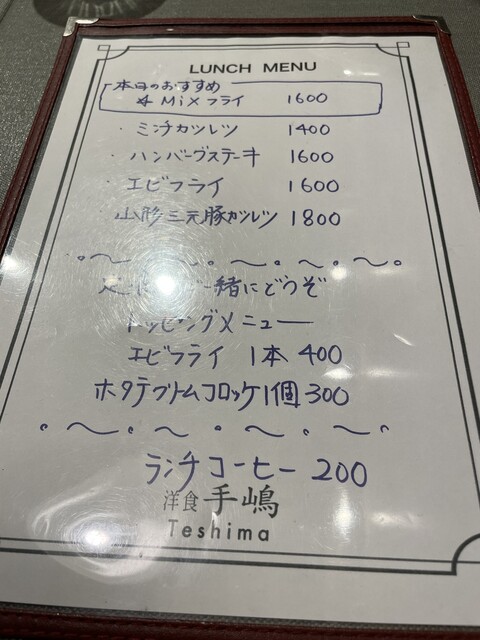 LUNCH MENU
本日のおすすめ
☆ MiXフライ 1600
・ミンチカツレツ 1400
・ハンバーグステーキ 1600
・エビフライ 1600
・山形三元豚カツレツ 1800
一緒にどうぞ
トッピングメニュー
エビフライ 1本 400
ホタテクリームコロッケ1個 300
ランチコーヒー 200
洋食 手嶋
Teshima